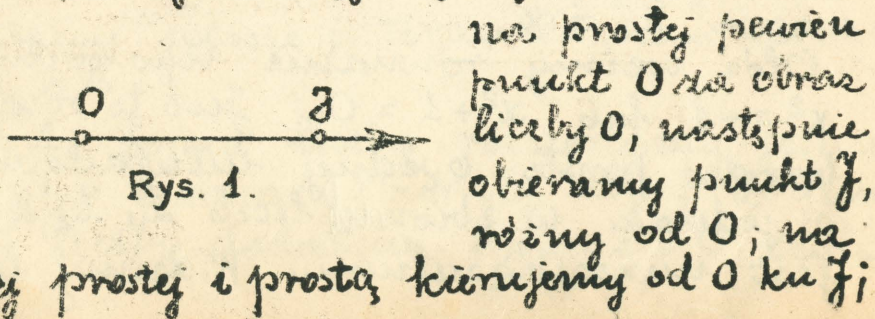 na prostej pewien
punkt O za obraz
liczby O, następnie
obieramy punkt J,
różny od O, na
O J
Rys. 1.
j prostej i prostą kierujemy od O ku J;